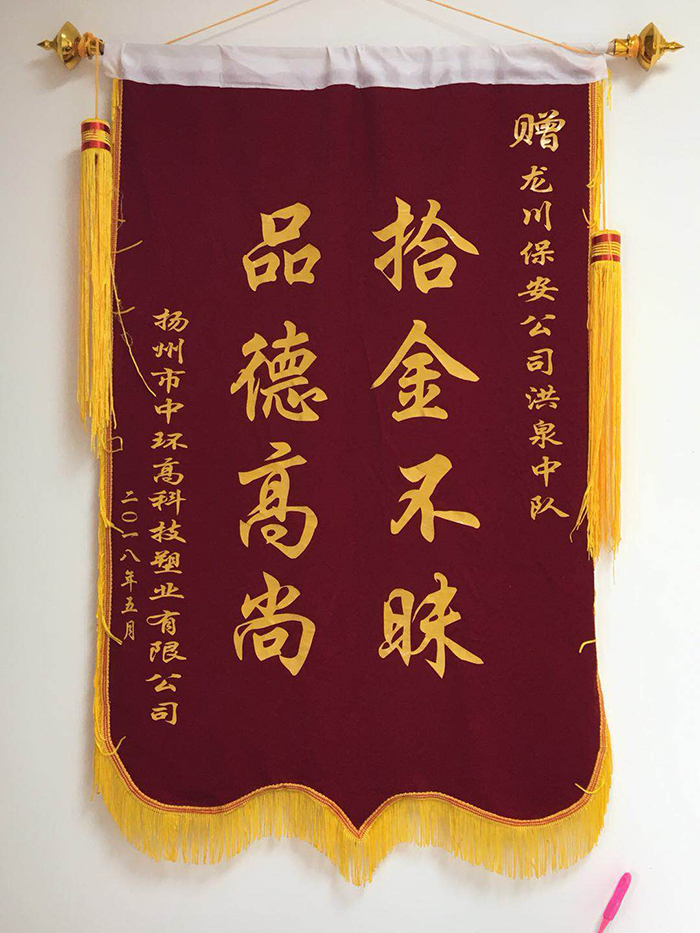 赠龙川保安公司洪泉中队
拾金不昧
品德高尚
扬州市中环高科技塑业有限公司
二〇一八年五月